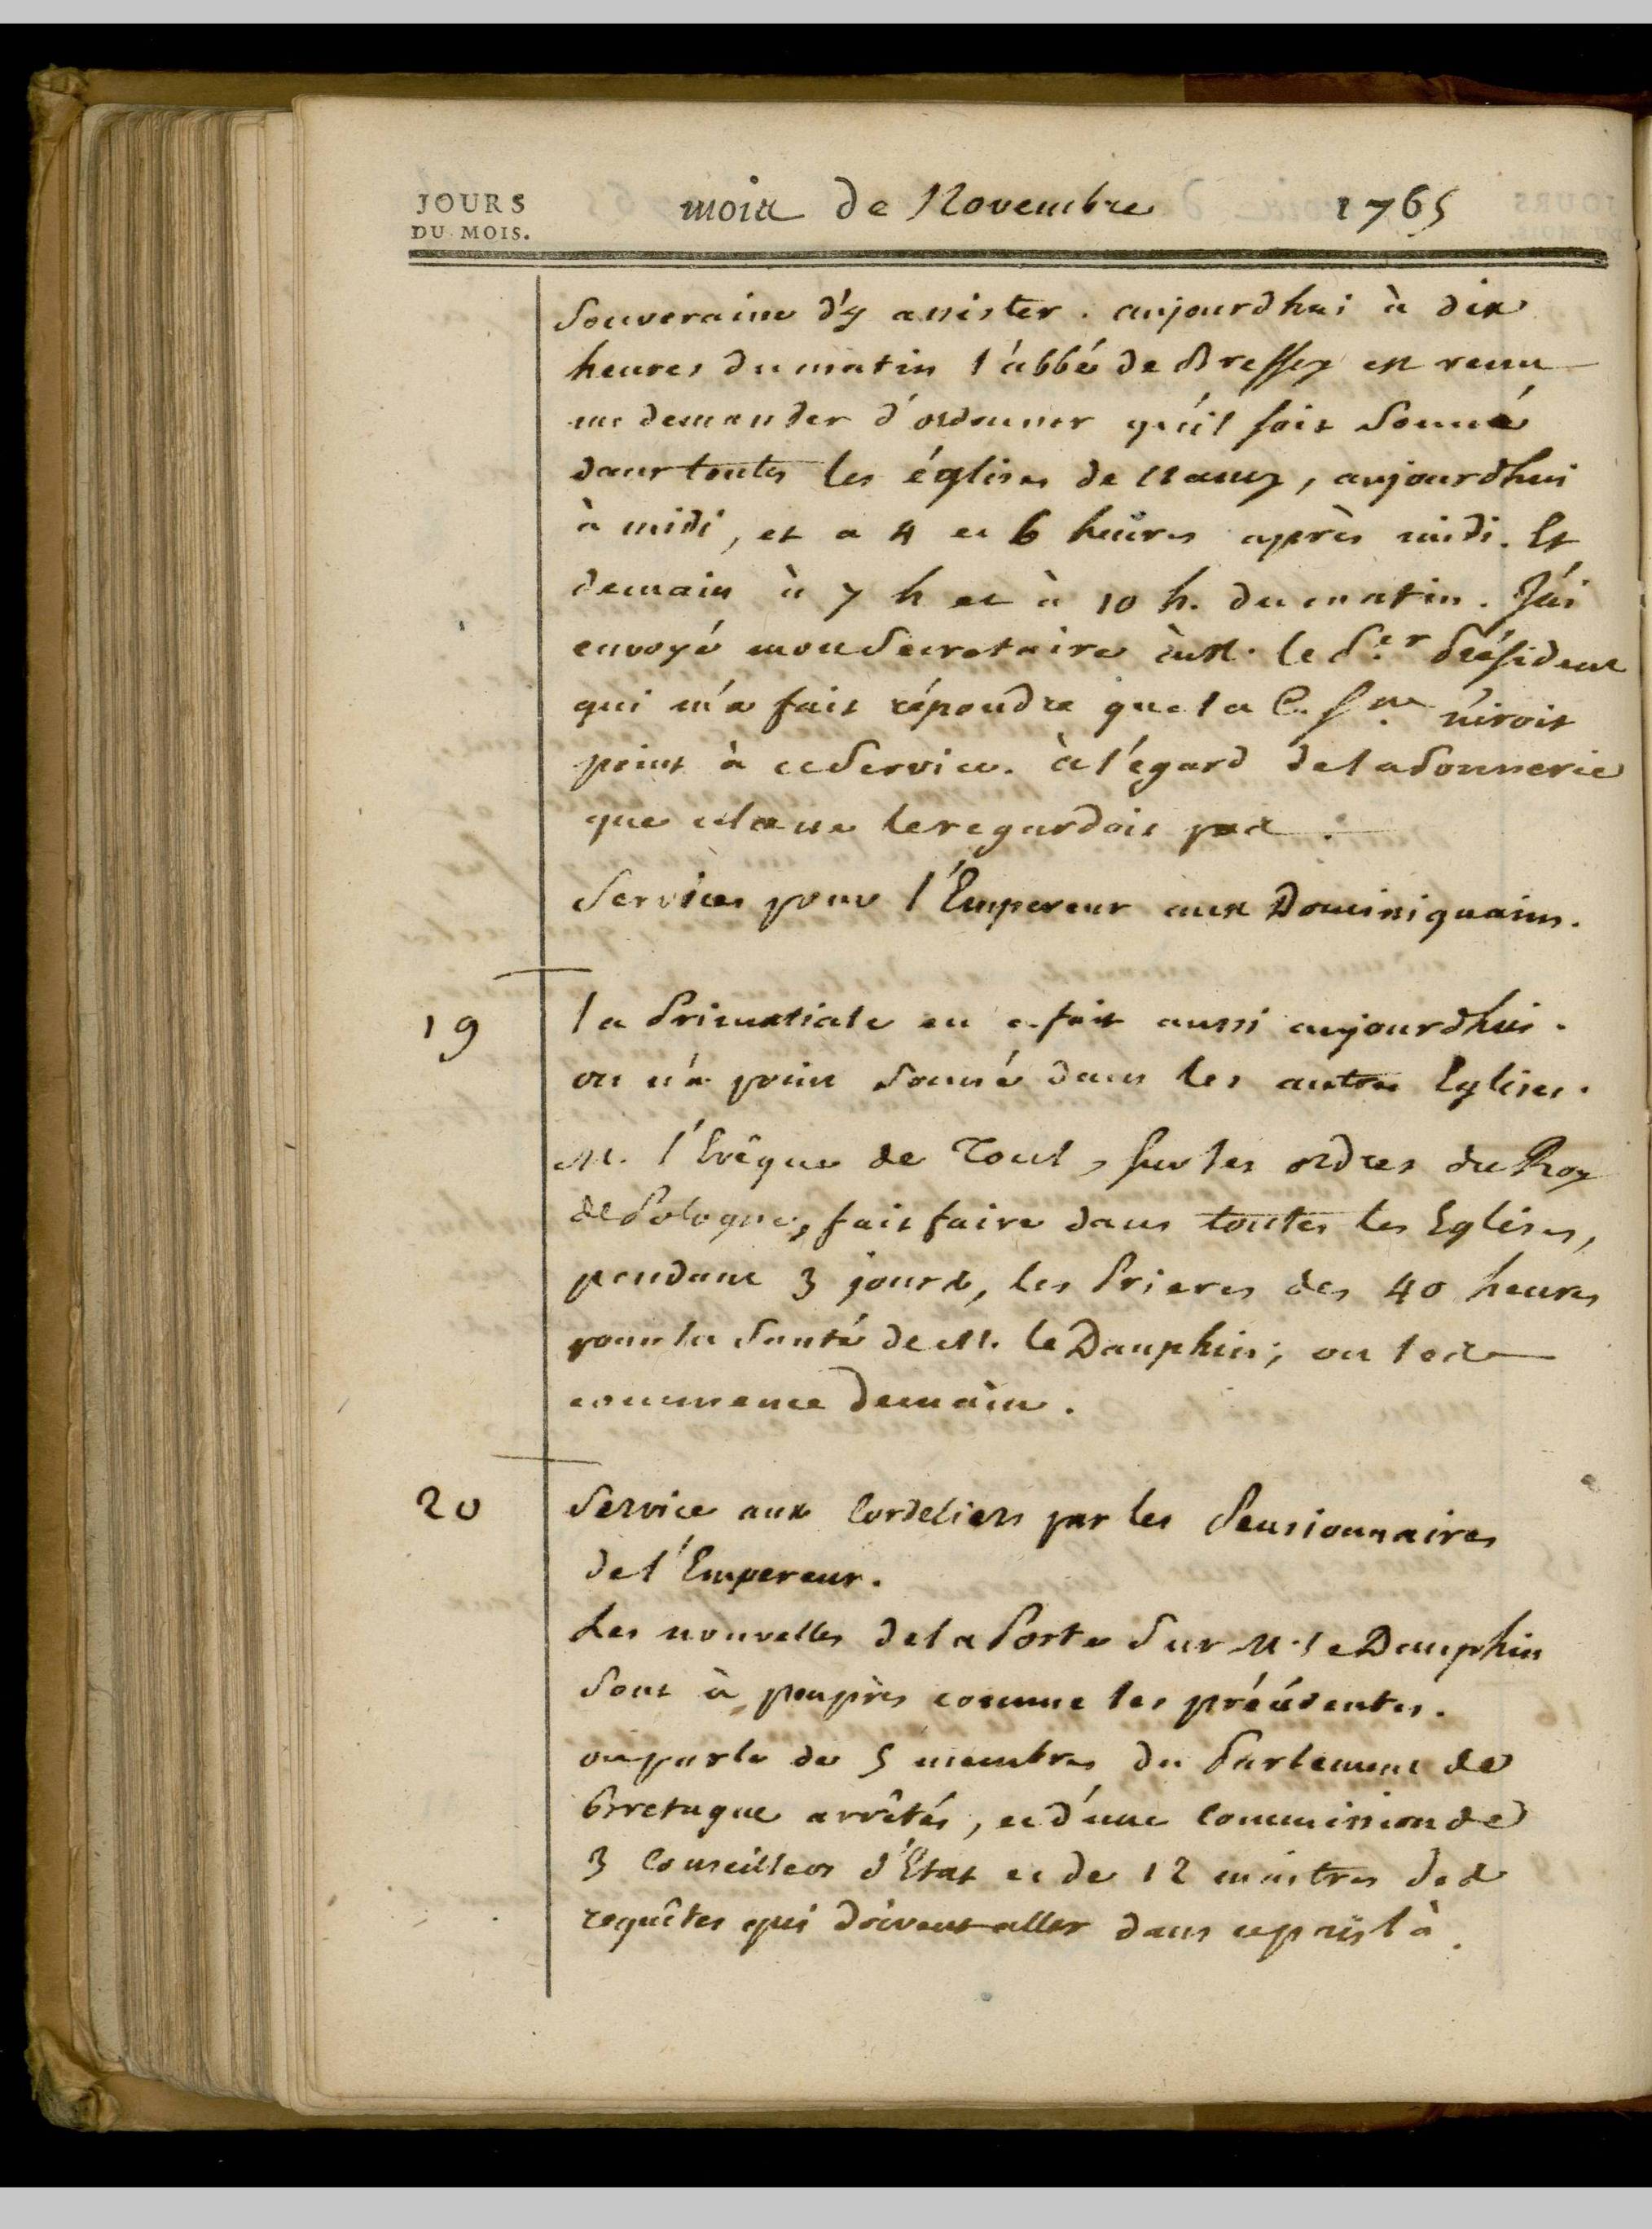 JOURS
DU MOIS.
mois de Novembre 1765
Souveraine d'y assister. aujourdhui à dix
heures du matin l'abbé de Bressey est venu
me demander d'ordonner qu'il soit sonné
dans toutes les églises de Nancy, aujourdhui
à midi, et a 4 et 6 heures après midi. Et
demain à 7 h et à 10 h. du matin. J'ai
envoyé mon Secretaire à M. le P.er Président
qui m'a fait répondre que la C. S.ne n'iroit
point à ce Service. à l'égard de la sonnerie
que cela ne le regardoit pas.
Services pour l'Empereur aux Dominiquains.
19
la Primatiale en a fait aussi aujourdhui.
on n'a point sonné dans les autres Eglises.
M. l'Evêque de Toul, sur les ordres du Roy
de Pologne, fait faire dans toutes les Eglises,
pendant 3 jours, les Prieres des 40 heures
pour la Santé de M. le Dauphin; on les
commence demain.
20
Service aux Cordeliers par les Pensionnaires
de l'Empereur.
Les nouvelles de la Poste sur M. le Dauphin
sont à peuprès comme les précédentes.
on parle de 5 membres du Parlement de
Bretagne arrêtés, et d'une commission de
3 Conseillers d'Etat et de 12 maitres des
requêtes qui doivent aller dans ce païs là.